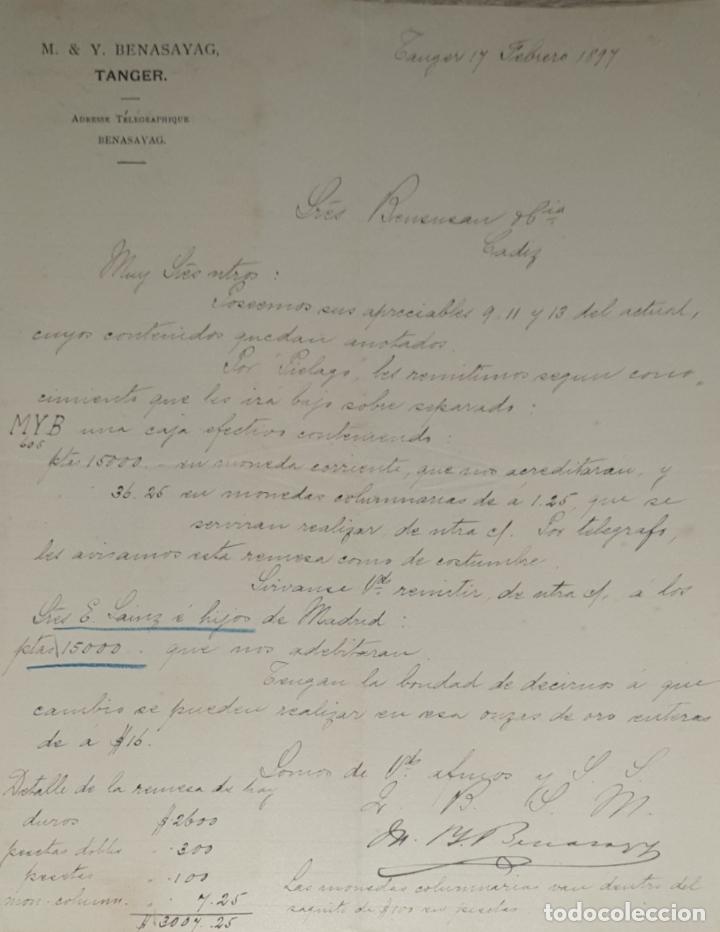 M. & Y. BENASAYAG,
TANGER.
ADRESSE TÉLÉGRAPHIQUE
BENASAYAG.
Tanger 17 Febrero 1897
Srēs Bensusan & Cia
Cadiz
Muy Srēs ntros :
Poseemos sus apreciables 9. 11 y 13 del actual,
cuyos contenidos quedan anotados.
Por "Pielago", les remitimos segun cono-
cimiento que les ira bajo sobre separado :
MYB una caja efectivo conteniendo :
605
ptas 15000.- en moneda corriente, que nos acreditaran, y
36.25 en monedas columnarias de á 1.25, que se
serviran realizar, de ntra c/. Por telegrafo,
les avisamos esta remesa como de costumbre.
Sirvanse Vds remitir, de ntra c/, á los
Srēs E. Sainz é hijos de Madrid :
ptas 15000.- que nos adebitaran.
Tengan la bondad de decirnos á que
cambio se pueden realizar en esa onzas de oro enteras
de a $16.
Somos de Vds afmos y S. S.
Q. B. S. M.
M. & Y. Benasayag
Detalle de la remesa de hoy
duros $2600
pesetas dobles " 300
pesetas " 100
mon. column. " 7.25
$ 3007.25
Las monedas columnarias van dentro del
saquito de $100 en pesetas.
todocoleccion